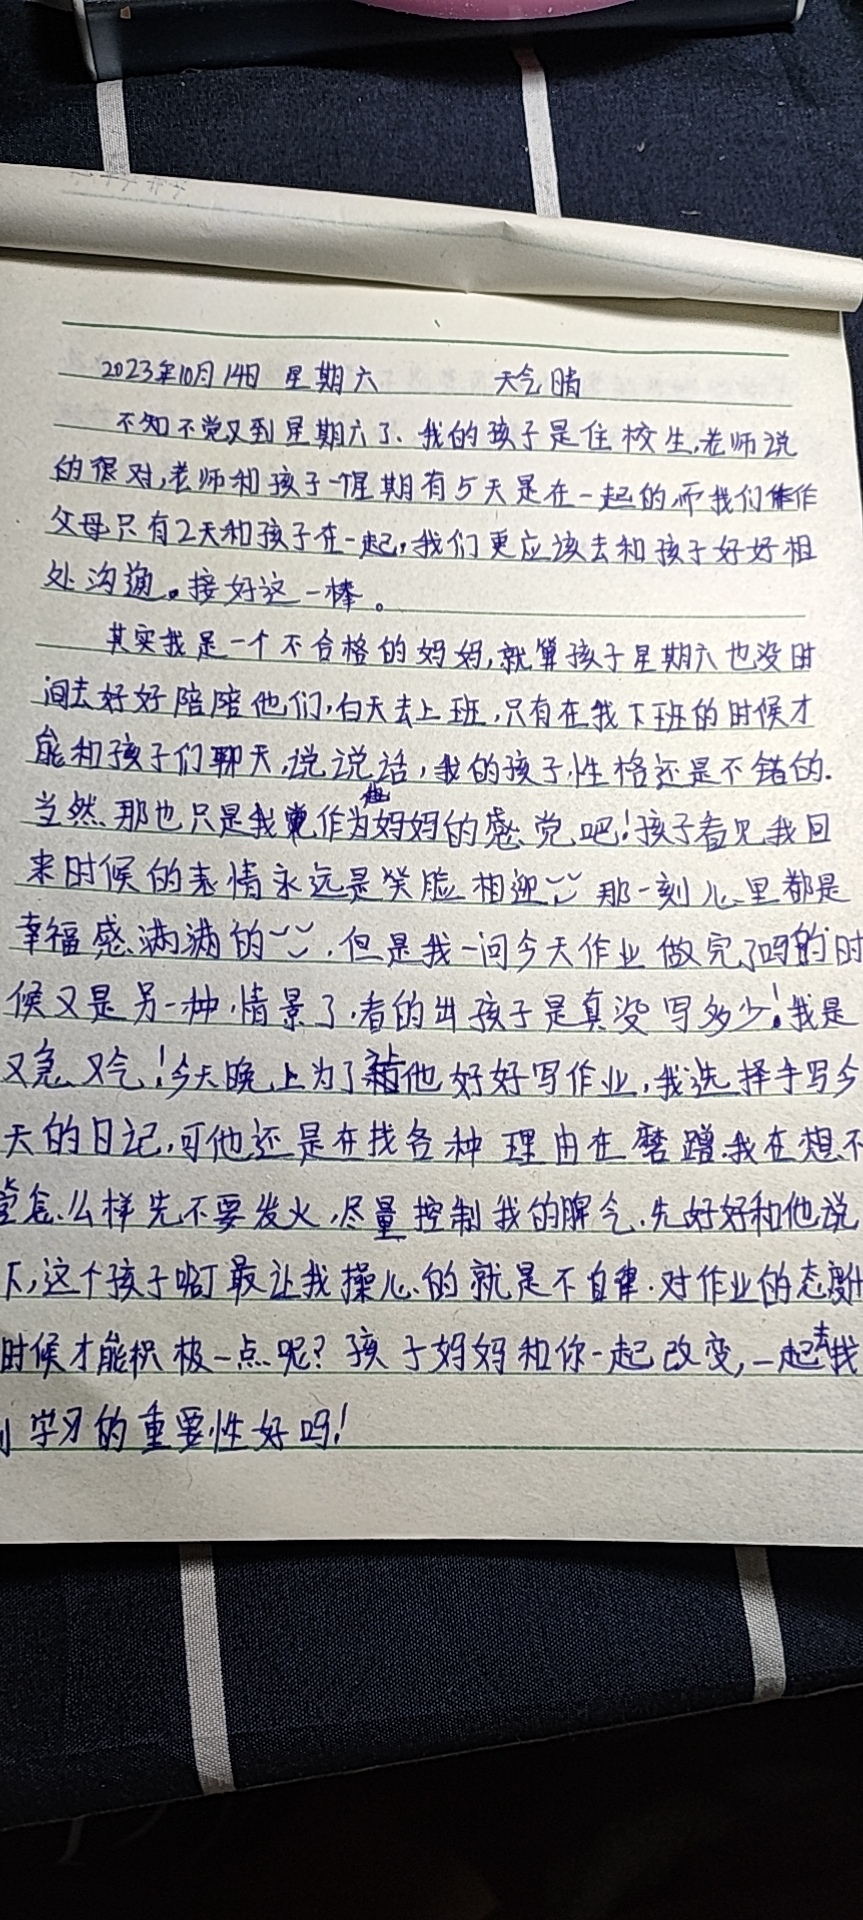 2023年10月14日 星期六 天气晴
不知不觉又到星期六了、我的孩子是住校生,老师说
的很对,老师和孩子一个星期有5天是在一起的,而我们作
父母只有2天和孩子在一起,我们更应该去和孩子好好相
处沟通。接好这一棒。
其实我是一个不合格的妈妈,就算孩子星期六也没时
间去好好陪陪他们,白天去上班,只有在我下班的时候才
能和孩子们聊天,说说话,我的孩子,性格还是不错的.
当然、那也只是我作为他妈妈的感觉吧!孩子看见我回
来时候的表情永远是笑脸相迎 那一刻心里都是
幸福感满满的 .但是我一问今天作业做完了吗的时
候又是另一种情景了.看的出孩子是真没写多少!我是
又急又气!今天晚上为了陪他好好写作业,我选择手写今
天的日记,可他还是在找各种理由在磨蹭.我在想不
怎么样先不要发火,尽量控制我的脾气.先好好和他说
下,这个孩子啊最让我操心的就是不自律.对作业的态度
时候才能积极一点呢?孩子妈妈和你一起改变,一起去找
到学习的重要性好吗!